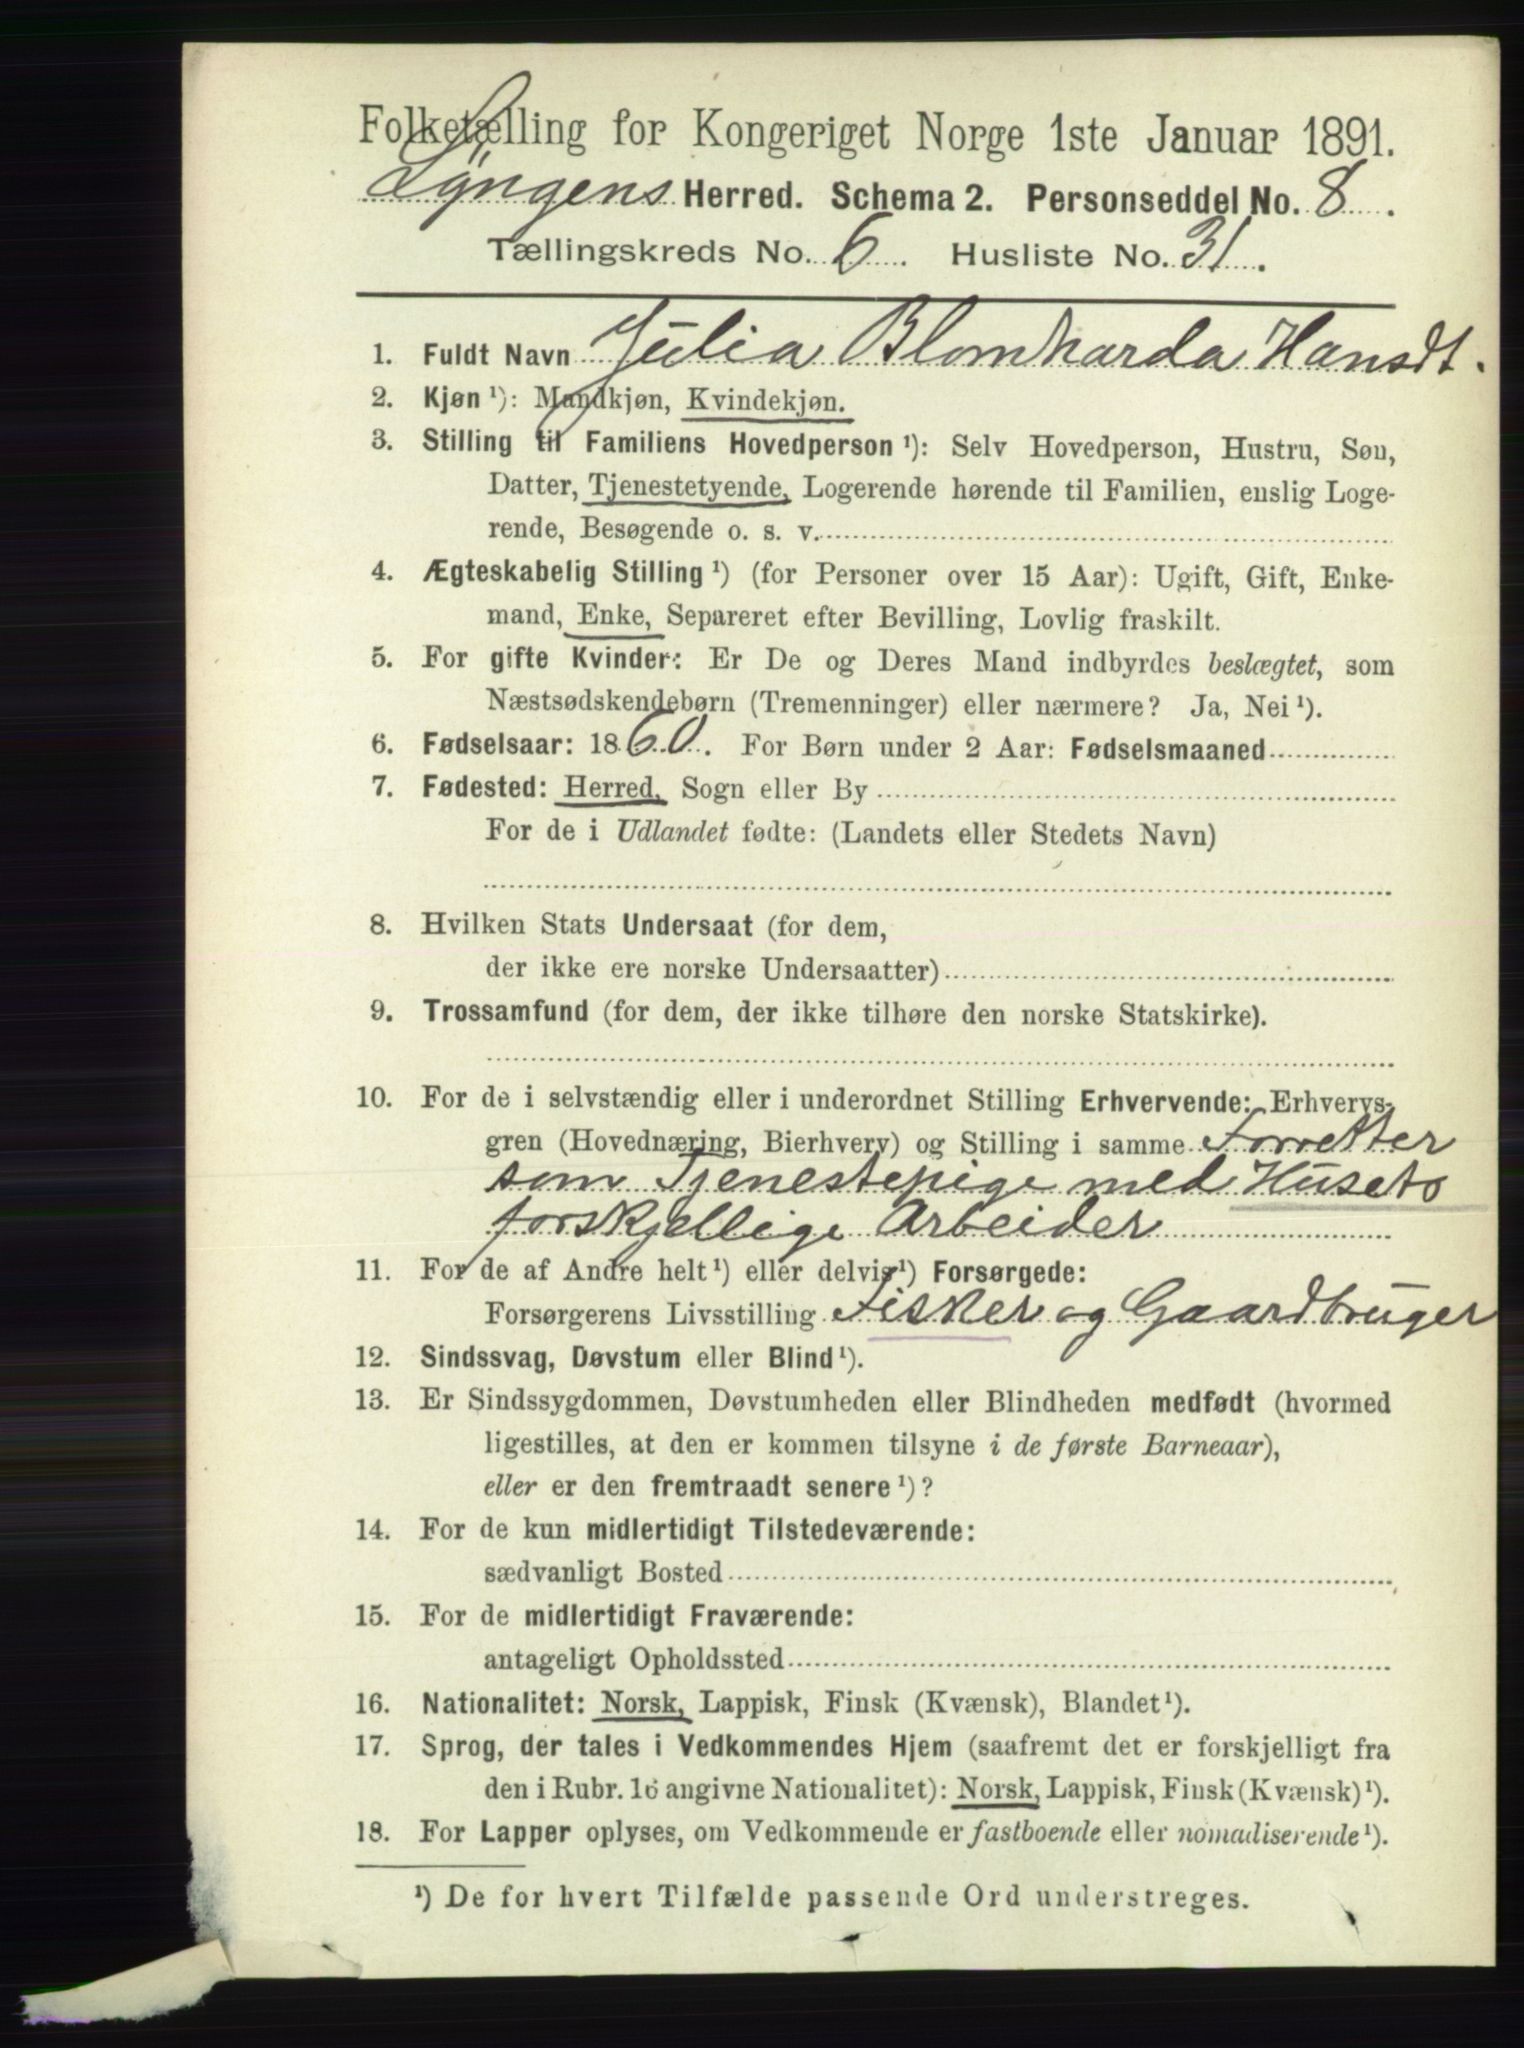 Folketælling for Kongeriget Norge 1ste Januar 1891.
Lyngens Herred. Schema 2. Personseddel No. 8.
Tællingskreds No. 6. Husliste No. 31.
1. Fuldt Navn Julia Blomharda Hansdt.
2. Kjøn ¹): Mandkjøn, Kvindekjøn.
3. Stilling til Familiens Hovedperson ¹): Selv Hovedperson, Hustru, Søn,
Datter, Tjenestetyende, Logerende hørende til Familien, enslig Loge-
rende, Besøgende o. s. v.
4. Ægteskabelig Stilling ¹) (for Personer over 15 Aar): Ugift, Gift, Enke-
mand, Enke, Separeret efter Bevilling, Lovlig fraskilt.
5. For gifte Kvinder: Er De og Deres Mand indbyrdes beslægtet, som
Næstsødskendebørn (Tremenninger) eller nærmere? Ja, Nei ¹).
6. Fødselsaar: 1860. For Børn under 2 Aar: Fødselsmaaned
7. Fødested: Herred, Sogn eller By
For de i Udlandet fødte: (Landets eller Stedets Navn)
8. Hvilken Stats Undersaat (for dem,
der ikke ere norske Undersaatter)
9. Trossamfund (for dem, der ikke tilhøre den norske Statskirke).
10. For de i selvstændig eller i underordnet Stilling Erhvervende: Erhvervs-
gren (Hovednæring, Bierhverv) og Stilling i samme Forretter
som Tjenestepige med Husets
forskjellige Arbeider
11. For de af Andre helt ¹) eller delvis ¹) Forsørgede:
Forsørgerens Livsstilling Fisker og Gaardbruger
12. Sindssvag, Døvstum eller Blind ¹).
13. Er Sindssygdommen, Døvstumheden eller Blindheden medfødt (hvormed
ligestilles, at den er kommen tilsyne i de første Barneaar),
eller er den fremtraadt senere ¹)?
14. For de kun midlertidigt Tilstedeværende:
sædvanligt Bosted
15. For de midlertidigt Fraværende:
antageligt Opholdssted
16. Nationalitet: Norsk, Lappisk, Finsk (Kvænsk), Blandet ¹).
17. Sprog, der tales i Vedkommendes Hjem (saafremt det er forskjelligt fra
den i Rubr. 16 angivne Nationalitet): Norsk, Lappisk, Finsk (Kvænsk) ¹).
18. For Lapper oplyses, om Vedkommende er fastboende eller nomadiserende ¹).
¹) De for hvert Tilfælde passende Ord understreges.